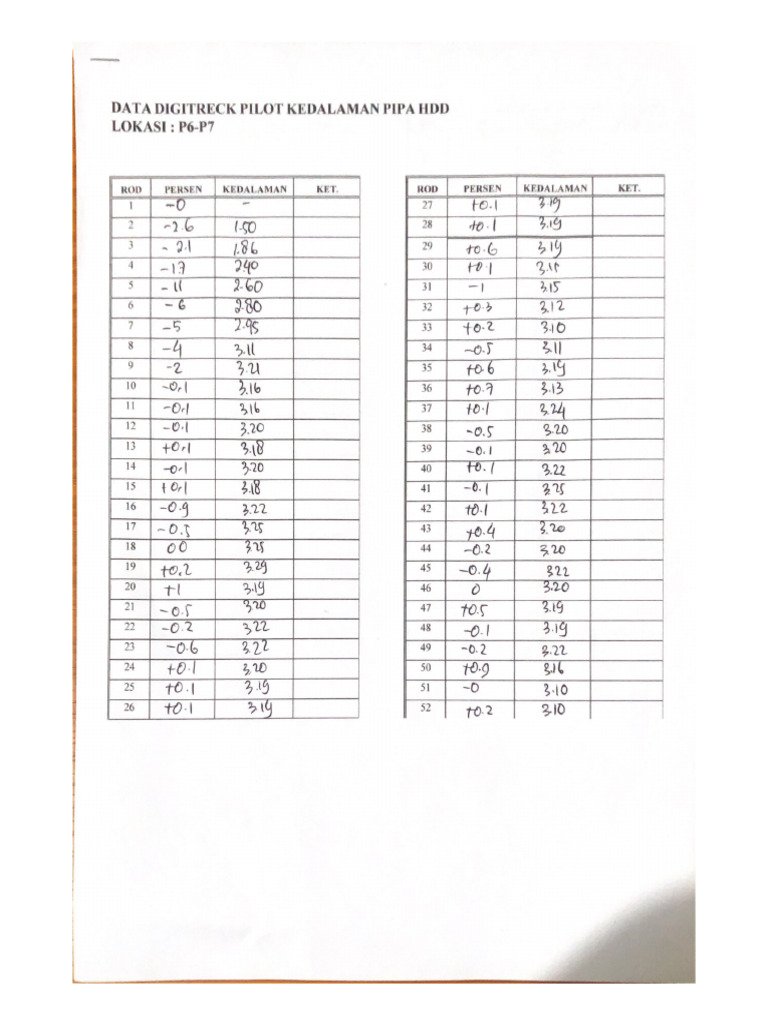 DATA DIGITRECK PILOT KEDALAMAN PIPA HDD
LOKASI : P6-P7
ROD PERSEN KEDALAMAN KET.
1 -0 -
2 -2.6 1.50
3 -21 1.86
4 -17 2.40
5 -11 2.60
6 -6 2.80
7 -5 2.95
8 -4 3.11
9 -2 3.21
10 -0,1 3.16
11 -0,1 316
12 -0.1 3.20
13 +0,1 3.18
14 -0.1 3.20
15 +0,1 3.18
16 -0.9 3.22
17 -0.5 3.25
18 00 3.25
19 +0.2 3.29
20 +1 3.19
21 -0.5 3.20
22 -0.2 322
23 -0.6 3.22
24 +0.1 3.20
25 +0.1 3.19
26 +0.1 3.19
ROD PERSEN KEDALAMAN KET.
27 +0.1 3.19
28 +0.1 3.19
29 +0.6 319
30 +0.1
31 -1 3.15
32 +0.3 3.12
33 +0.2 3.10
34 -0.5 3.11
35 +0.6 3.19
36 +0.7 3.13
37 +0.1 3.24
38 -0.5 3.20
39 -0.1 3.20
40 +0.1 3.22
41 -0.1 3.25
42 +0.1 322
43 +0.4 3.20
44 -0.2 3.20
45 -0.4 322
46 0 3.20
47 +0.5 3.19
48 -0.1 3.19
49 -0.2 3.22
50 +0.9 3.16
51 -0 3.10
52 +0.2 3.10